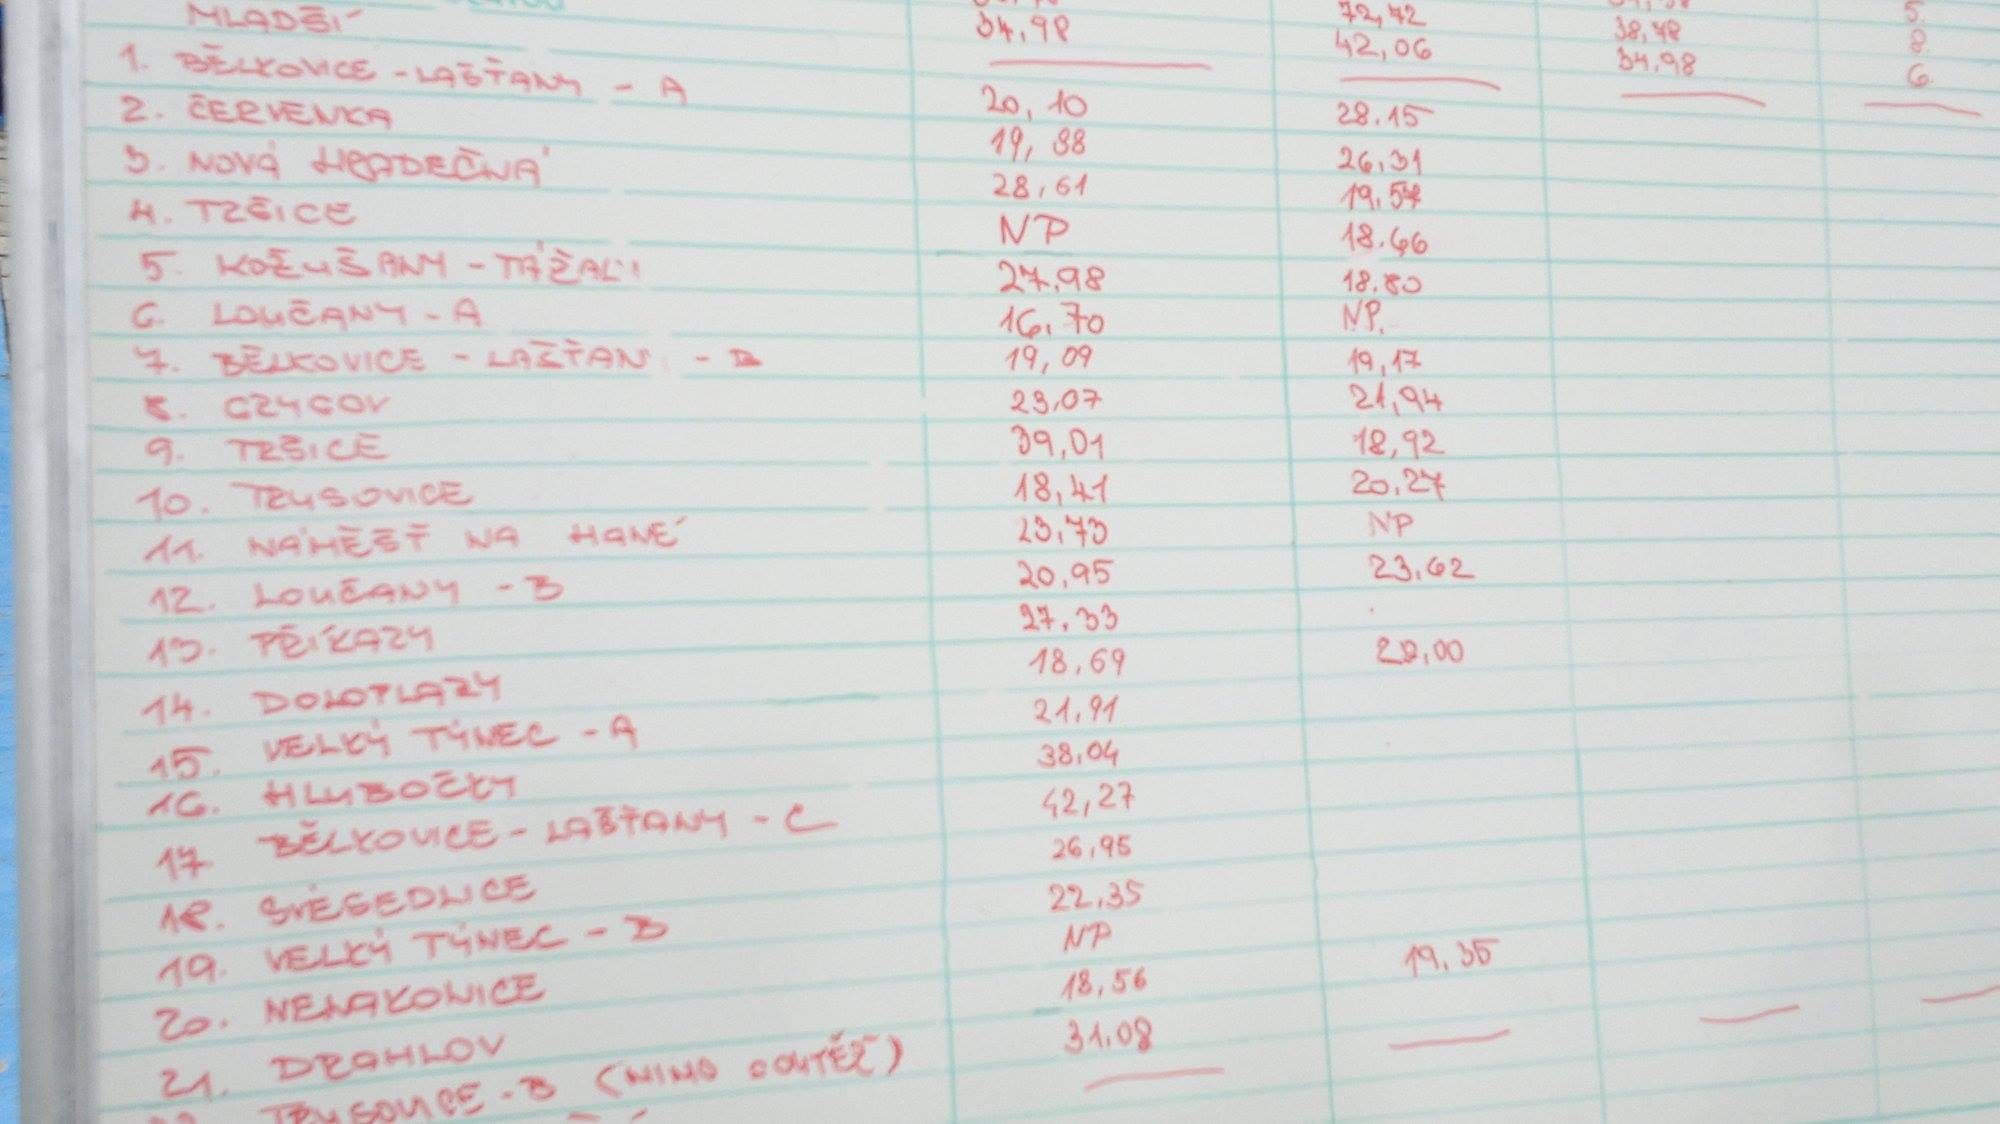 72,42 5.
38,48 8.
MLADŠÍ 34,98 42,06 34,98 6.
1. BĚLKOVICE - LAŠŤANY - A 20,10 28.15
2. ČERVENKA 19,88 26,31
3. NOVÁ HRADEČNÁ 28,61 19,57
4. TRŠICE NP 18.46
5. KOŽUŠANY - TÁŽALY 27,98 18.80
6. LOUČANY - A 16,70 NP.
7. BĚLKOVICE - LAŠŤAN - B 19,09 19,17
8. GRYGOV 23,07 21,94
9. TRŠICE 39,01 18,92
10. TRUSOVICE 18,41 20,27
11. NÁMĚŠŤ NA HANÉ 23,73 NP
12. LOUČANY - B 20,95 23,62
13. PŘÍKAZY 27,33
14. DOLOPLAZY 18,69
15. VELKÝ TÝNEC - A 21,91
16. HLUBOČKY 38,04
17. BĚLKOVICE - LAŠŤANY - C 42,27
18. SVÉSEDLICE 26,95
19. VELKÝ TÝNEC - B 22,35
20. NENAKONICE NP
21. DRAHLOV 18,56 19,35
TRUSOVICE - B (MIMO SOUTĚŽ) 31,08